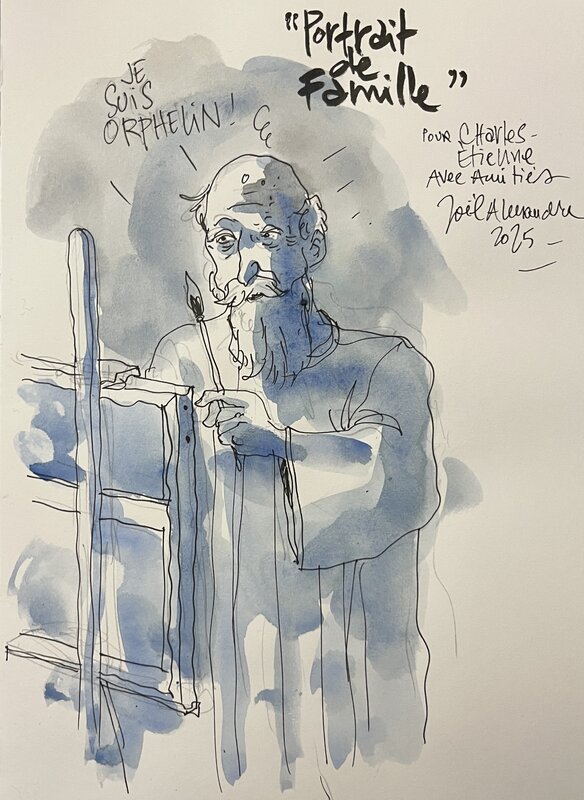 "Portrait
de
Famille"
JE
SUIS
ORPHELIN!
POUR Charles-
Etienne
Avec Amitiés
Joël Alessandra
2025